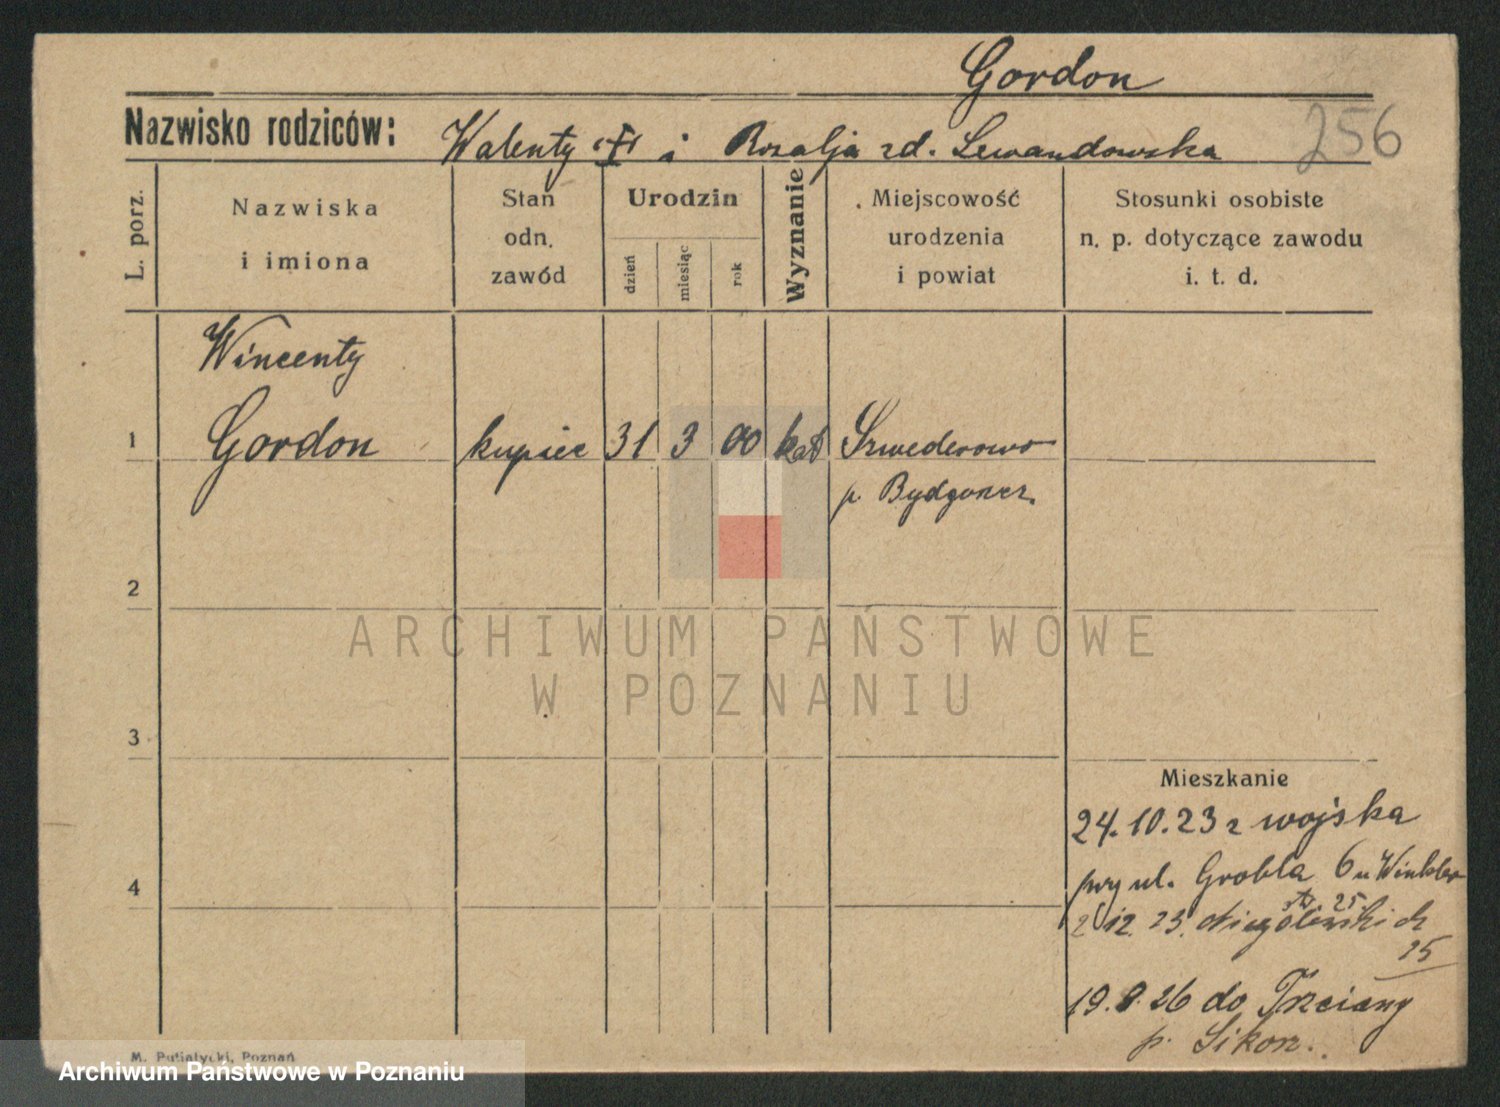 Gordon
Nazwisko rodziców: Walenty i Rozalja zd. Lewandowska
256
L. porz.
Nazwiska
i imiona
Stan
odn.
zawód
Urodzin
dzień
miesiąc
rok
Wyznanie
Miejscowość
urodzenia
i powiat
Stosunki osobiste
n. p. dotyczące zawodu
i. t. d.
Wincenty
1 Gordon kupiec 31 3 00 kat Szwederowo
p. Bydgoszcz.
2
ARCHIWUM PAŃSTWOWE
W POZNANIU
3
Mieszkanie
24.10.23 z wojska
przy ul. Grobla 6 u Winkler
25.
12. 23. Niegolewskich
25
4
19. 8. 26 do Trzciany
p. Sikorz.
M. Putiatycki, Poznań
Archiwum Państwowe w Poznaniu